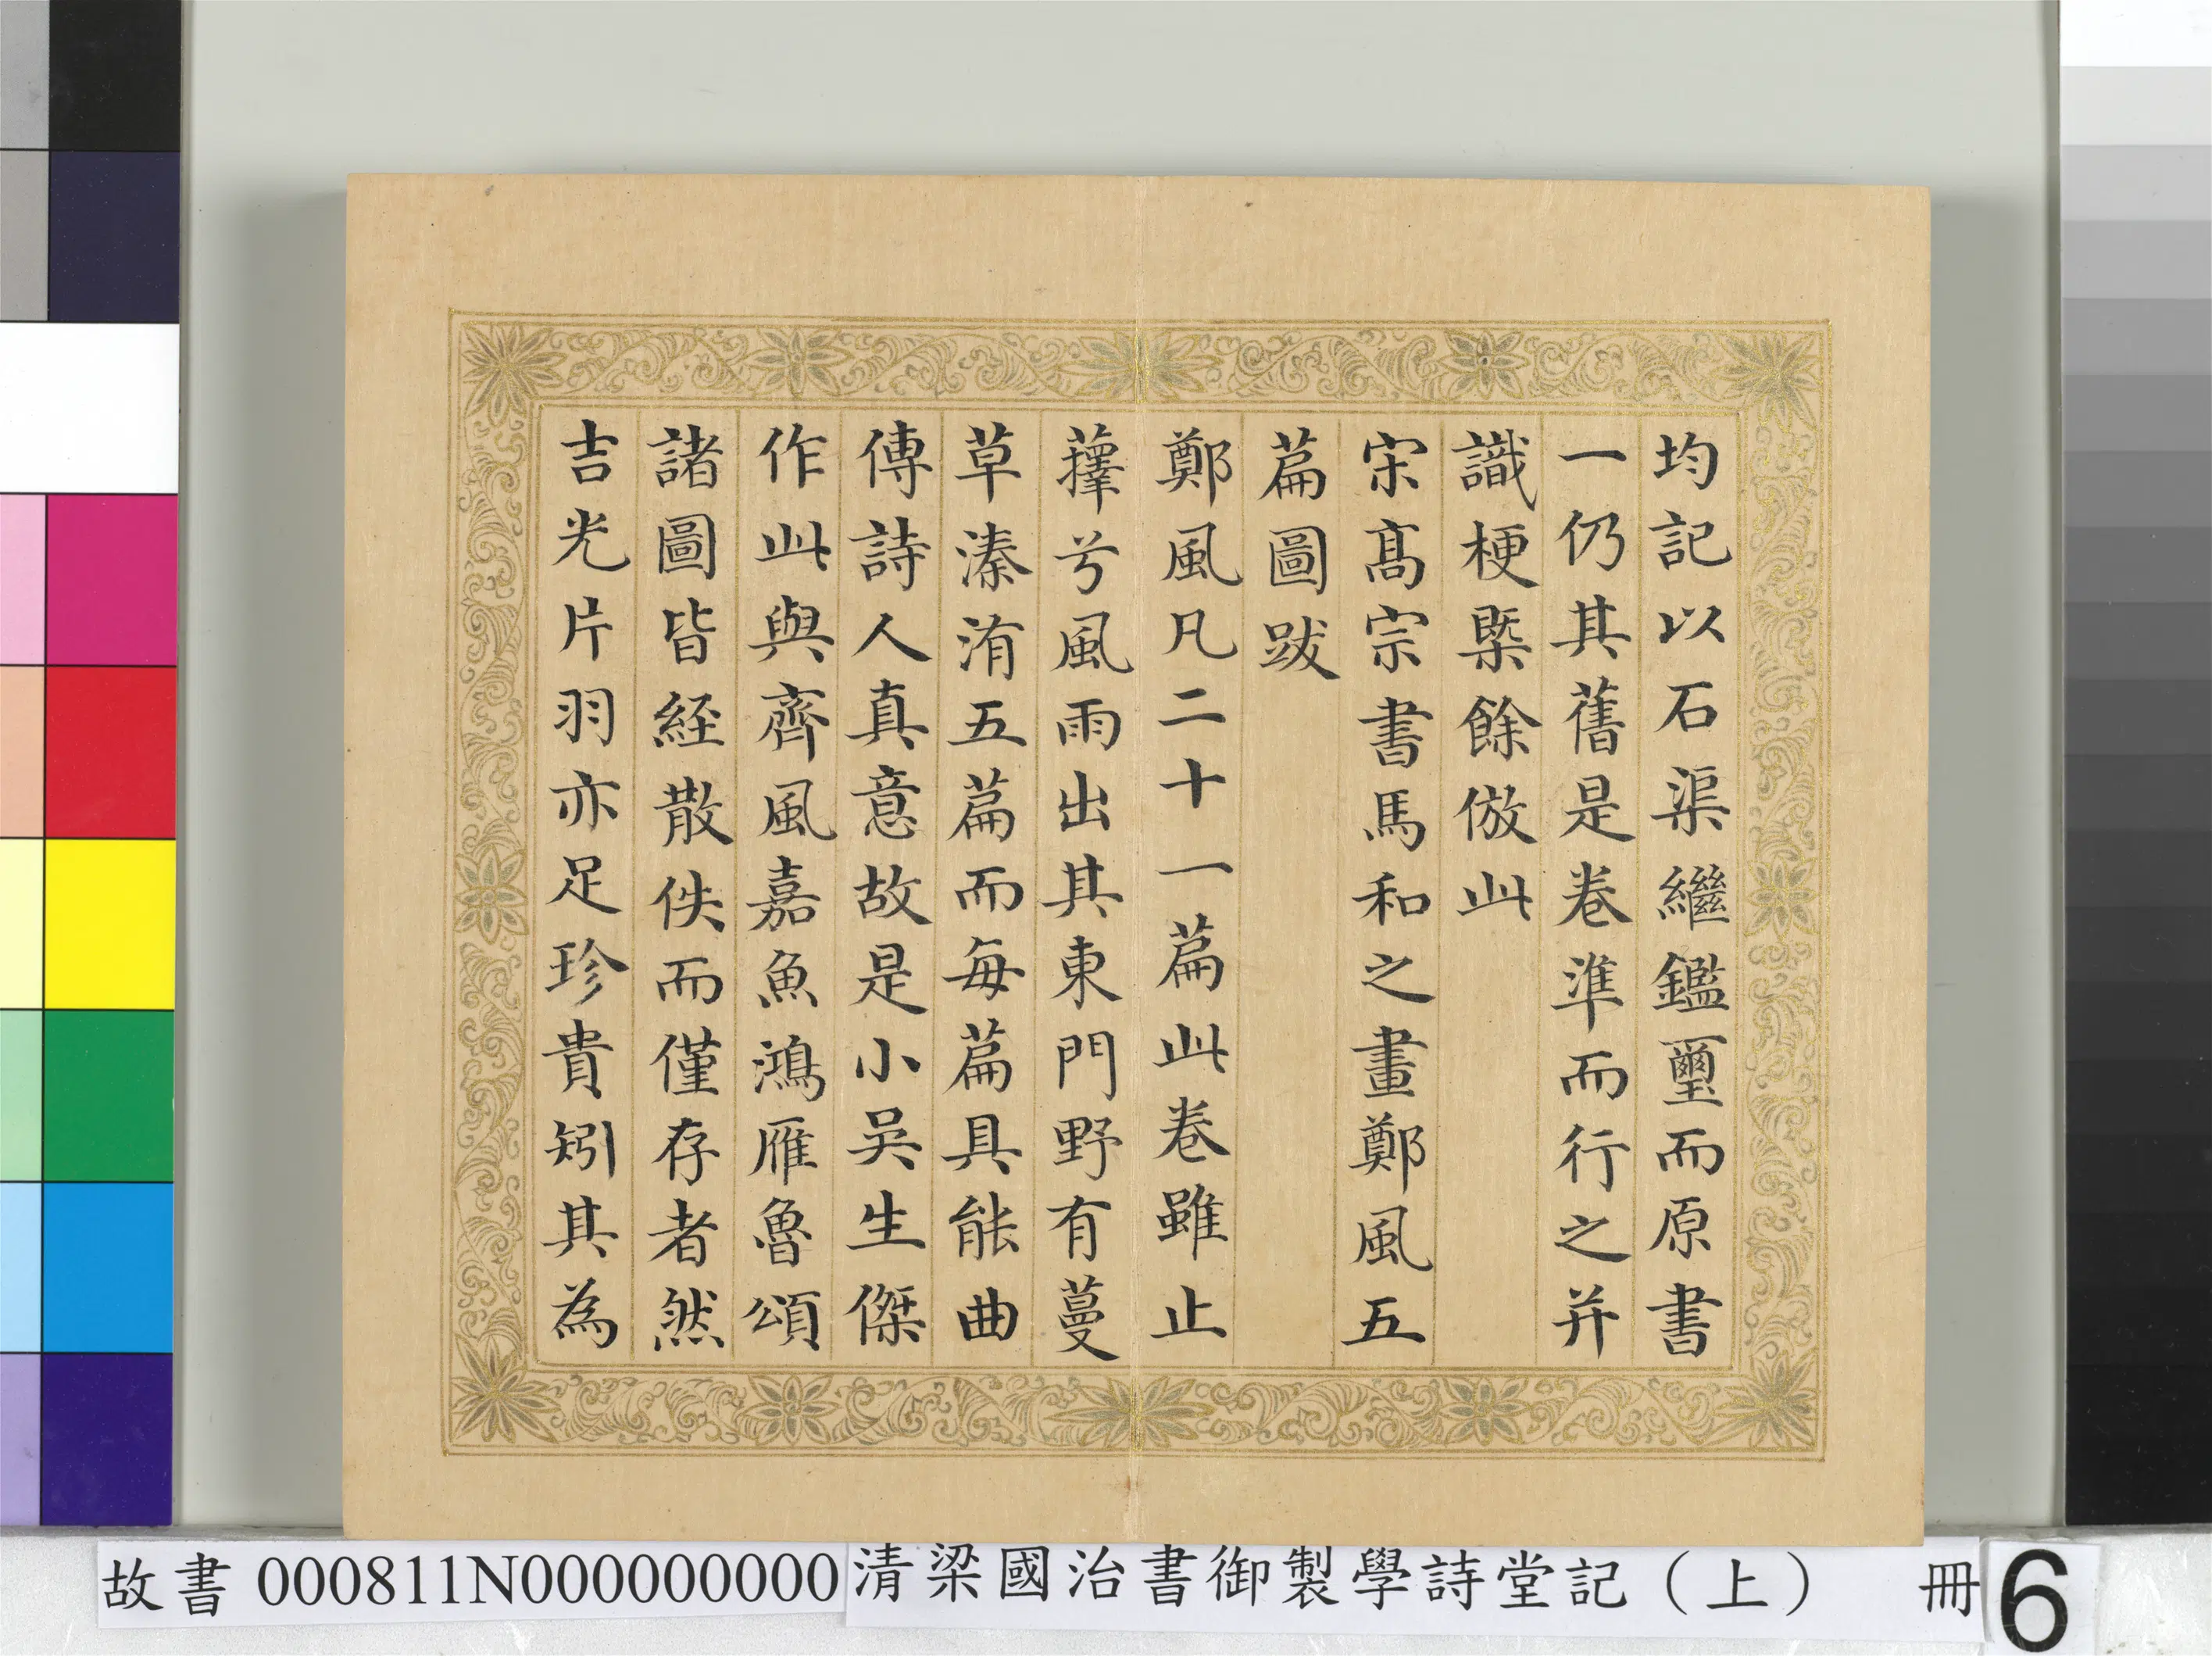 均記以石渠繼鑑璽而原書
一仍其舊是卷準而行之并
識梗槩餘倣此
宋髙宗書馬和之畫鄭風五
篇圖跋
鄭風凡二十一篇此卷雖止
蘀兮風雨出其東門野有蔓
草溱洧五篇而每篇具能曲
傳詩人真意故是小吳生傑
作此與齊風嘉魚鴻雁魯頌
諸圖皆經散佚而僅存者然
吉光片羽亦足珍貴矧其為
故書 000811N000000000 清梁國治書御製學詩堂記（上） 冊 6